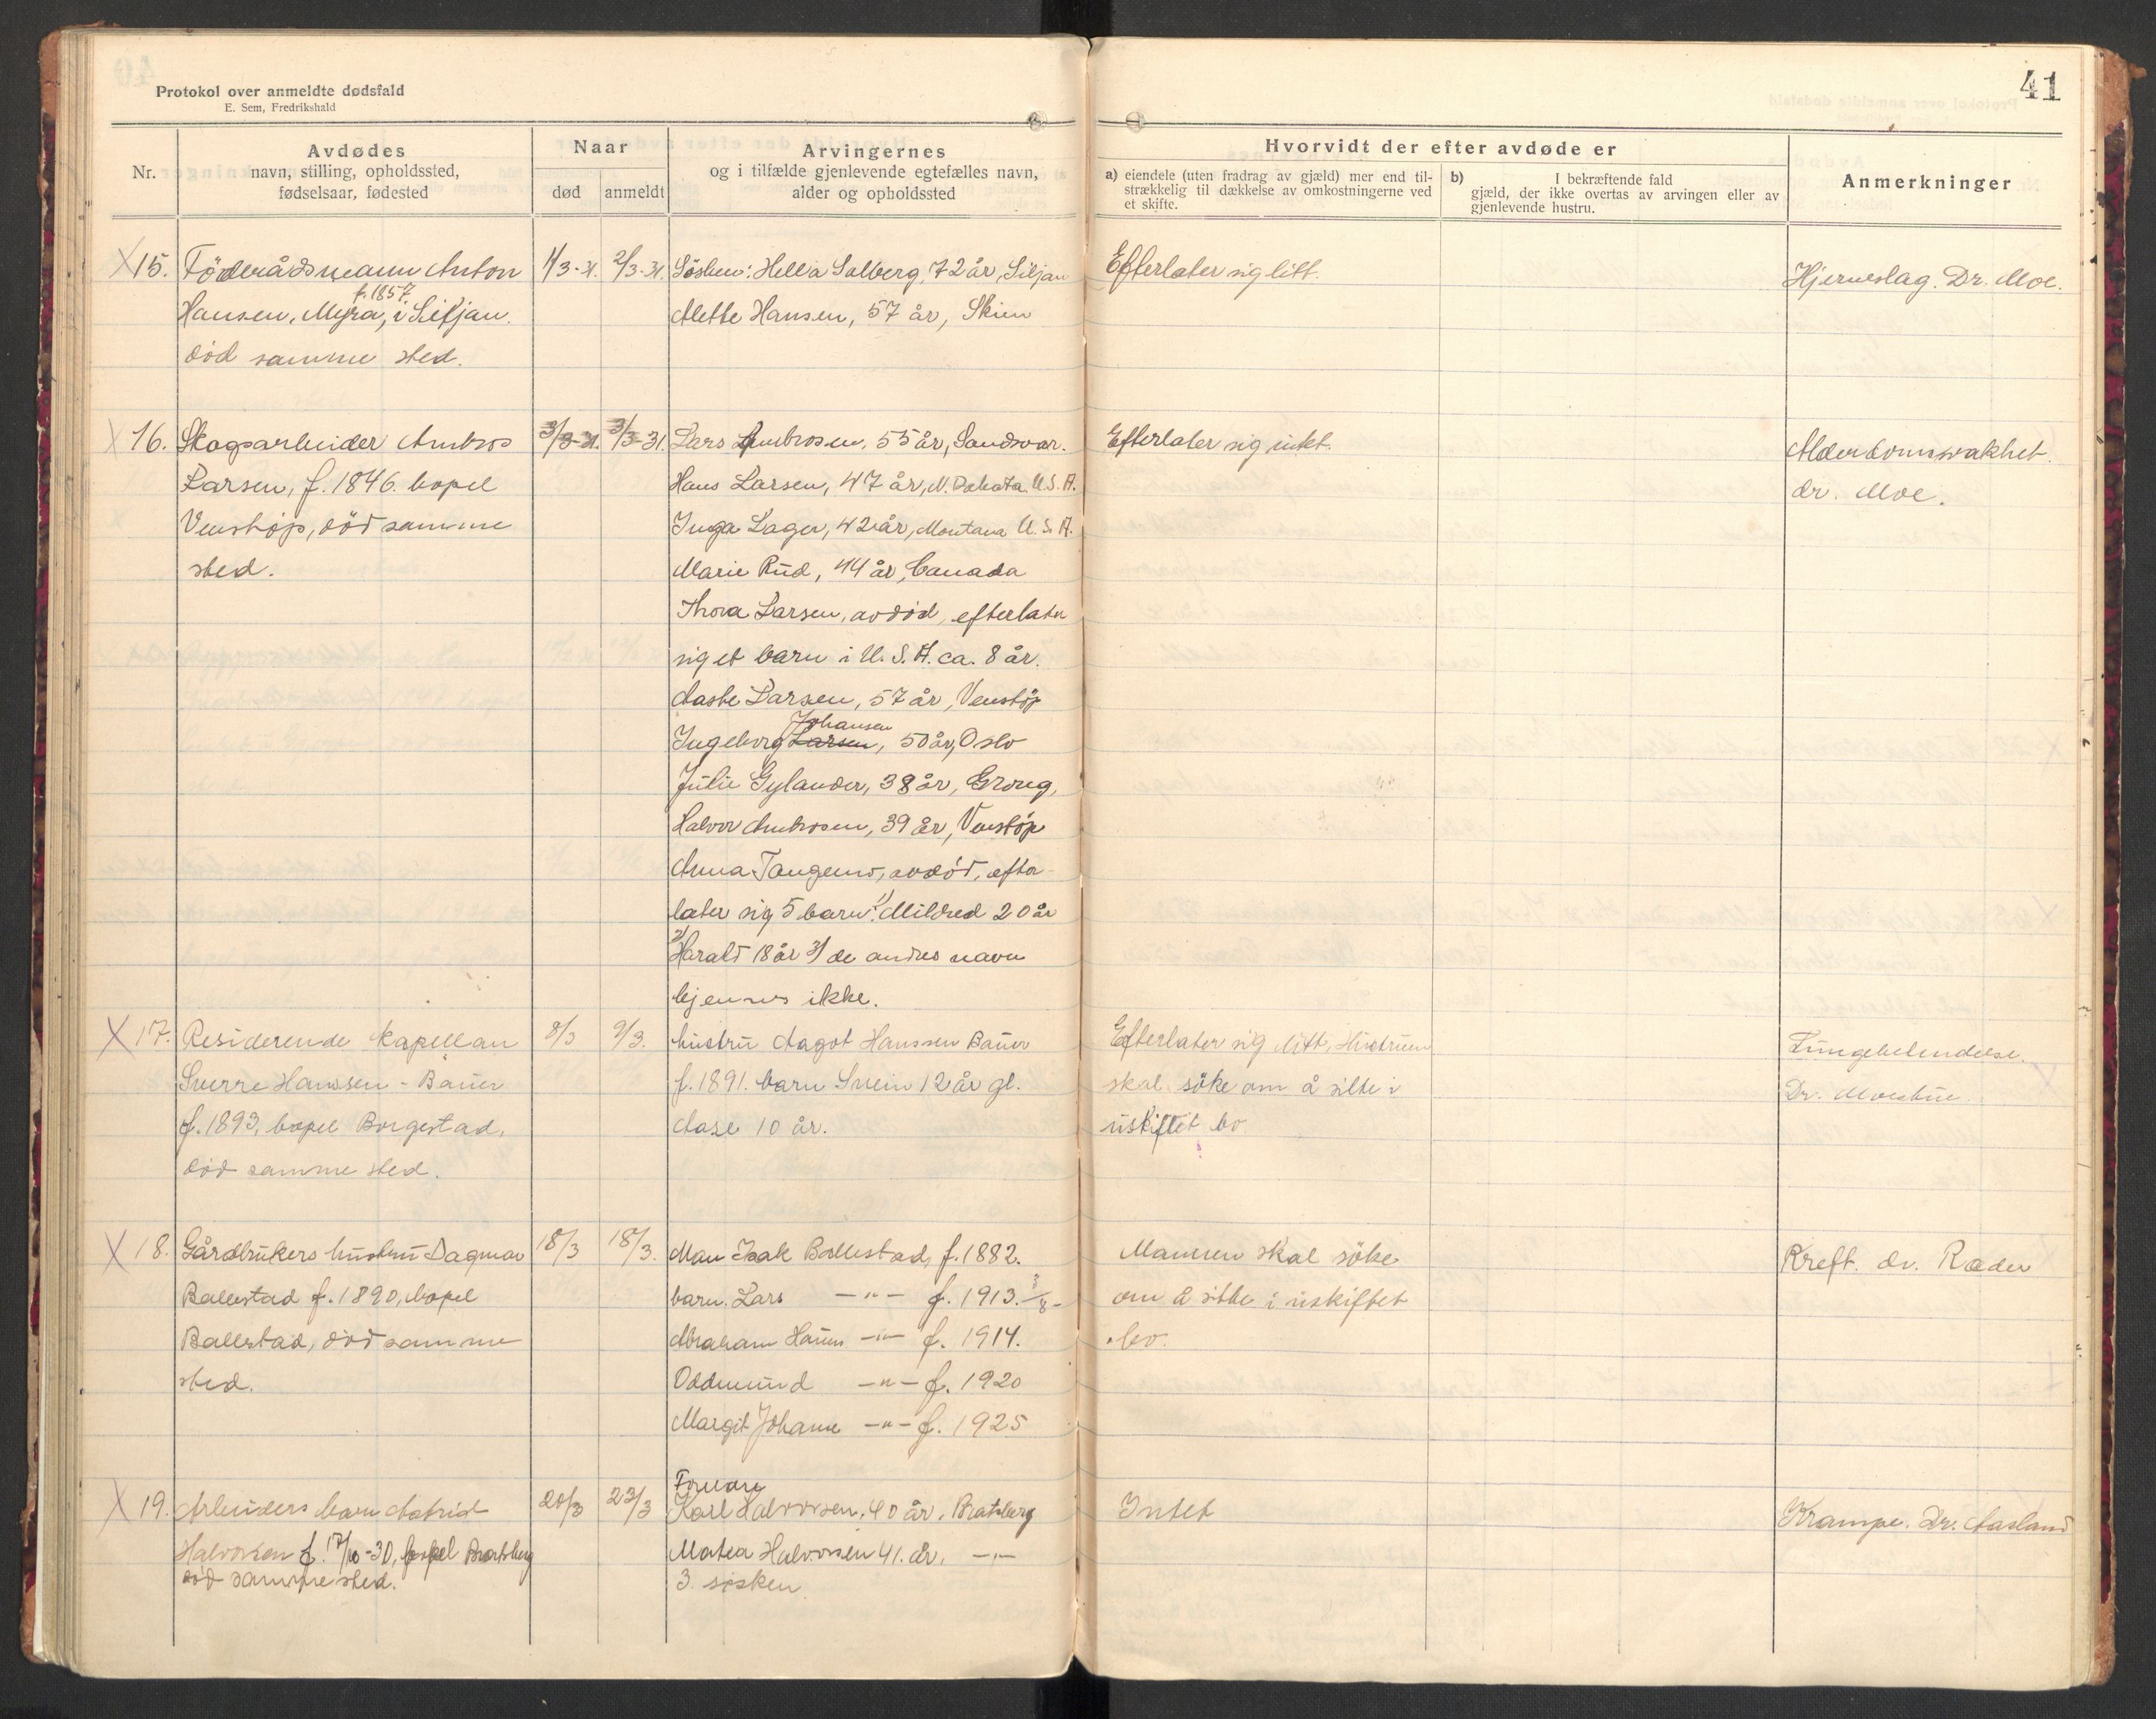 Protokol over anmeldte dødsfald
E. Sem, Fredrikshald
41
Nr.
Avdødes
navn, stilling, opholdssted,
fødselsaar, fødested
Naar
død
anmeldt
Arvingernes
og i tilfælde gjenlevende egtefælles navn,
alder og opholdssted
Hvorvidt der efter avdøde er
a) eiendele (uten fradrag av gjæld) mer end til-
strækkelig til dækkelse av omkostningerne ved
et skifte.
b) I bekræftende fald
gjæld, der ikke overtas av arvingen eller av
gjenlevende hustru.
Anmerkninger
X 15. Föderådsmann Anton
f. 1857
Hansen, Myra, i Siljan.
död samme sted.
1/3-31. 2/3-31.
Sösken: Hella Solberg, 72 år, Siljan
Mette Hansen, 57 år, Skien
Efterlater sig litt.
Hjerneslag. Dr. Moe.
X 16. Skogsarbeider Ambros
Larsen, f. 1846. bopel
Venstøp, död samme
sted.
3/3-31. 3/3-31.
Lars Ambrosen, 55 år, Sandsvær.
Hans Larsen, 47 år, N. Dakota U.S.A.
Inga Lager, 42 år, Montana U.S.A.
Marie Rud, 44 år, Canada
Thora Larsen, avdöd, efterlater
sig et barn i U.S.A. ca. 8 år.
Aaste Larsen, 57 år, Venstöp
Johansen
Ingeborg Larsen, 50 år, Oslo
Julie Gylander, 38 år, Grong,
Halvor Ambrosen, 39 år, Venstöp
Anna Tangen, avdöd, efter-
later sig 5 barn: 1/ Mildred 20 år
2/ Harald 18 år 3/ de andres navn
kjennes ikke.
Efterlater sig intet.
Alderdomssvakhet.
dr. Moe.
X 17. Residerende kapellan
Sverre Hanssen-Bauer
f. 1893, bopel Borgestad,
död samme sted.
8/3 9/3.
hustru Dagot Hanssen Bauer
f. 1891. barn Svein 12 år gl.
Aase 10 år.
Efterlater sig litt, Hustruen
skal söke om å sitte i
uskiftet bo
Lungebetendelse.
Dr. Moestue.
X 18. Gårdbrukers hustru Dagmar
Ballestad f. 1890, bopel
Ballestad, död samme
sted.
18/3 18/3.
Man Isak Ballestad, f. 1882.
barn. Lars -"- f. 1913. 3/8-
Abraham Hans -"- f. 1914.
Oddmund -"- f. 1920
Margit Johanne -"- f. 1925
Mannen skal söke
om å sitte i uskiftet
bo.
Kreft. dr. Ræder
X 19. Arbeiders barn Astrid
Halvorsen f. 17/10-30, bopel Bratsberg
död samme sted.
20/3 23/3
Foreldre
Karl Halvorsen, 40 år, Bratsberg
Matea Halvorsen 41. år. -"-
3. søsken
Intet
Krampe. Dr. Aasland